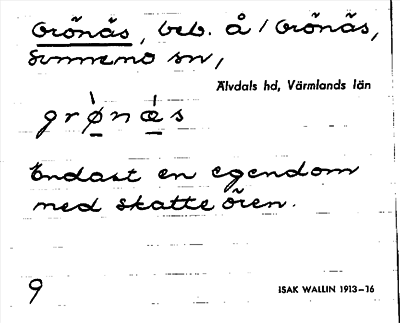 Grönäs, beb. å / Grönäs,
Sunnemo sn,
Älvdals hd, Värmlands län
grǿ̱næ̱̀s
Endast en egendom
med skatteören.
9
ISAK WALLIN 1913–16